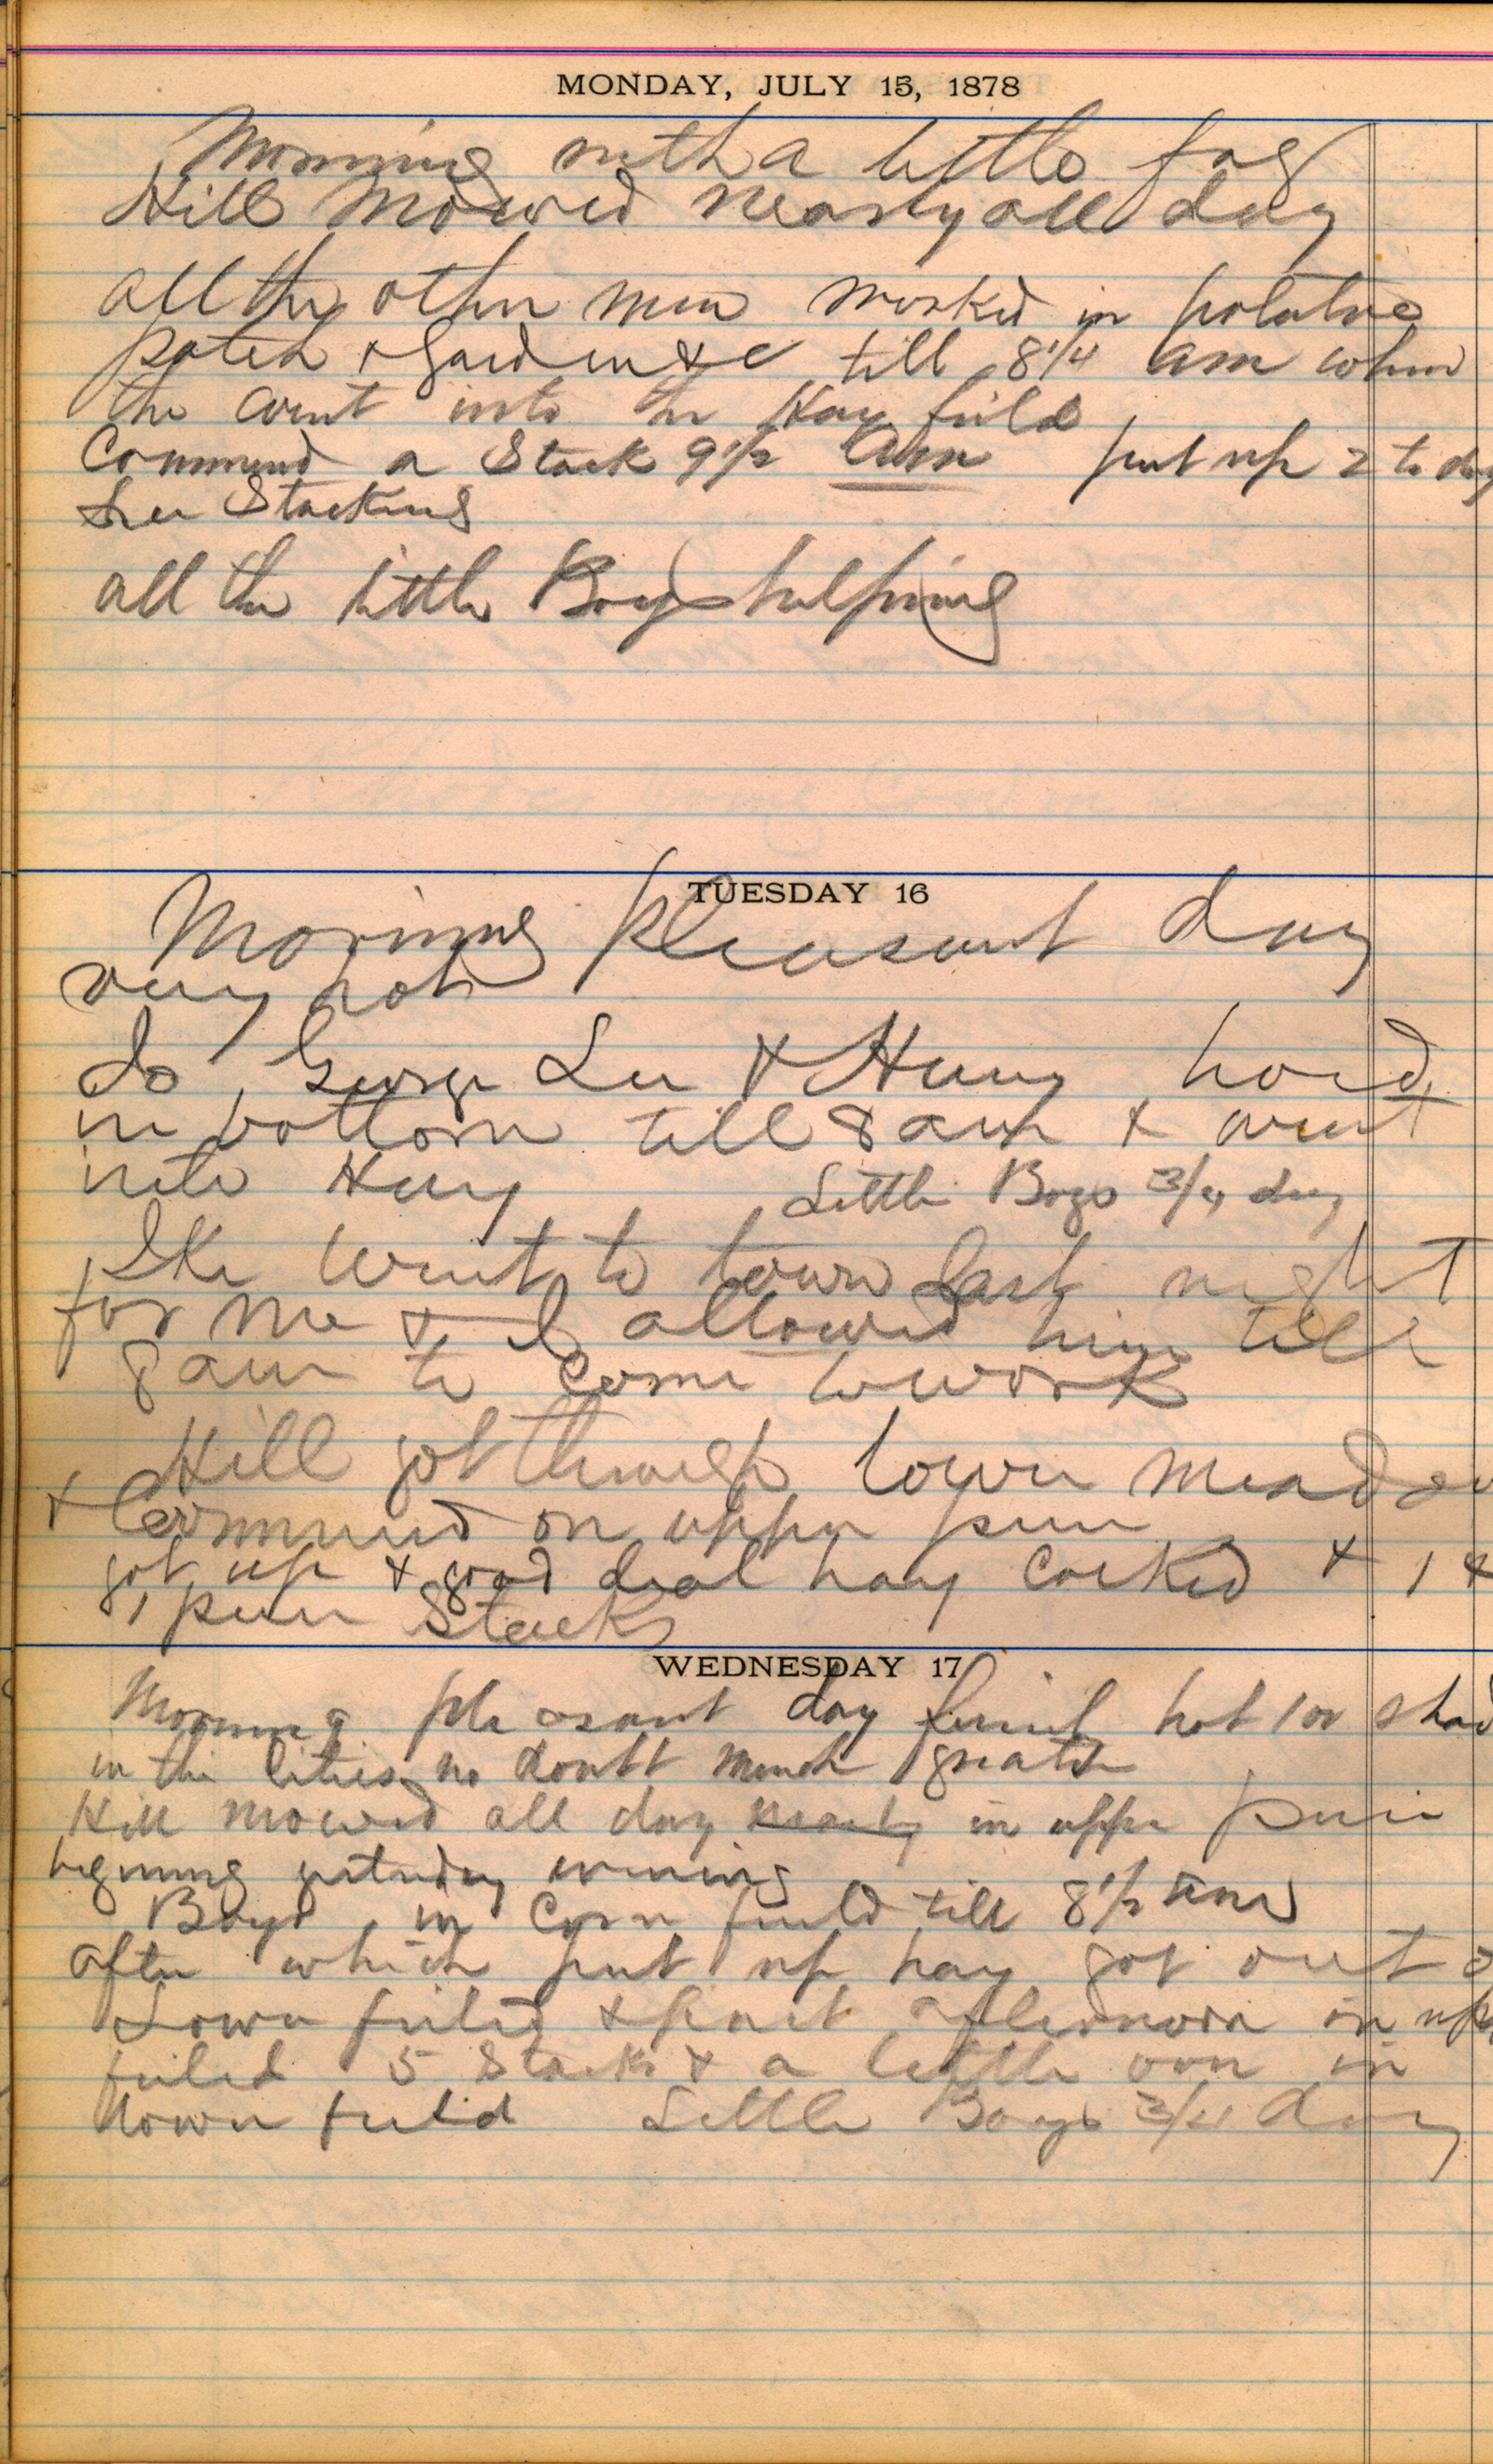 MONDAY, JULY 15, 1878
Morning with a little fog
Hill Mowed nearly all day
all the other men worked in potatoe
patch & Garden &c till 8 1/4 am when
the went into the Hay field
Commend a Stack 9 1/2 Am put up 2 to day
Lee Stacking
all the little Boys helping
TUESDAY 16
Morning Pleasant day
very hot
Jo, George Lee & Henry hoed
in bottom till 8 am & went
into Hay Little Boys 3/4 day
Ike went to town last night
for me & I allowed him till
8 am to come to work
Hill got through lower meadow
& Commenced on upper
got up & good deal hay Cocked & 1 &
1 Stacks
WEDNESDAY 17
Morning pleasant day hot 100 shad
in the Cities no doubt much greater
Hill mowed all day nearly in upper
begining yesterday evening
Boys in Corn field till 8 1/2 Am
after which put up hay got out
Lower field & part afternoon in
field 5 Stacks & a little one in
lower field Little Boys 3/4 day